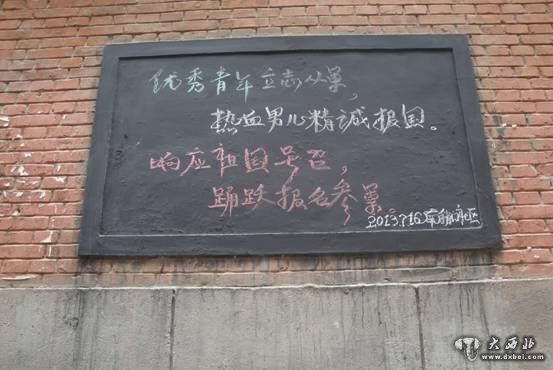 优秀青年立志从軍,
热血男儿精诚报国。
响应祖国号召,
踊跃报名参軍。
2013.7.16 社区
大西北
www.dxbei.com